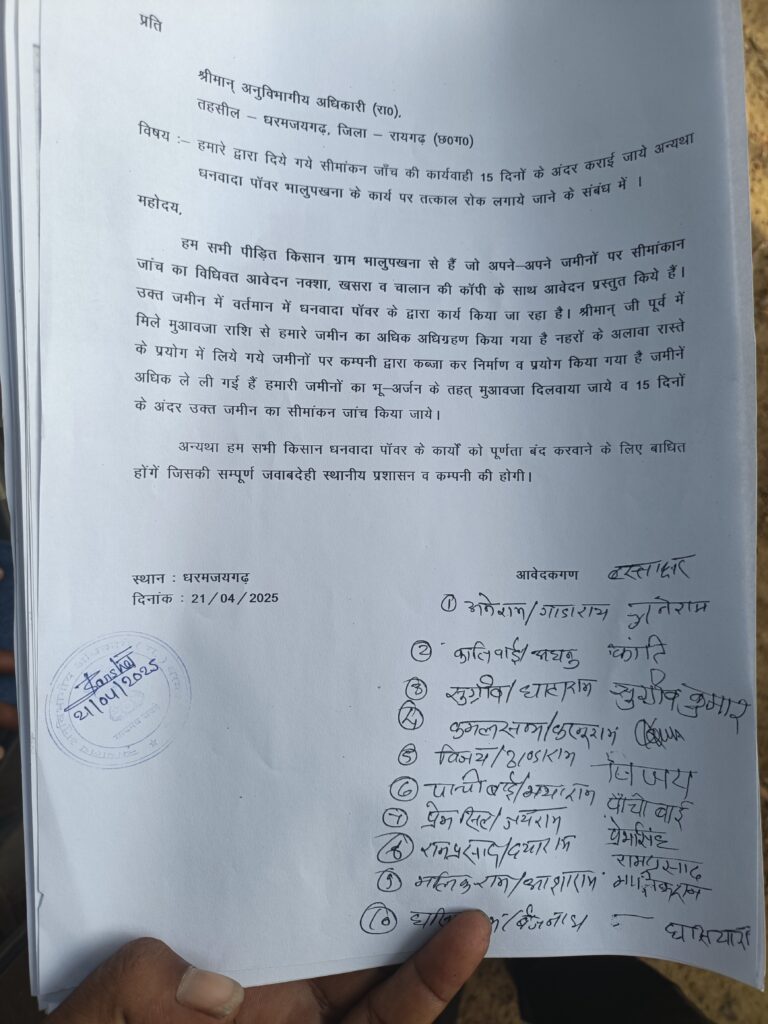 प्रति
श्रीमान् अनुविभागीय अधिकारी (रा0),
तहसील – धरमजयगढ़, जिला – रायगढ़ (छ0ग0)
विषय :– हमारे द्वारा दिये गये सीमांकन जाँच की कार्यवाही 15 दिनों के अंदर कराई जाये अन्यथा
धनवादा पॉवर भालुपखना के कार्य पर तत्काल रोक लगाये जाने के संबंध में ।
महोदय,
हम सभी पीड़ित किसान ग्राम भालुपखना से हैं जो अपने–अपने जमीनों पर सीमांकान
जांच का विधिवत आवेदन नक्शा, खसरा व चालान की कॉपी के साथ आवेदन प्रस्तुत किये हैं।
उक्त जमीन में वर्तमान में धनवादा पॉवर के द्वारा कार्य किया जा रहा है। श्रीमान् जी पूर्व में
मिले मुआवजा राशि से हमारे जमीन का अधिक अधिग्रहण किया गया है नहरों के अलावा रास्ते
के प्रयोग में लिये गये जमीनों पर कम्पनी द्वारा कब्जा कर निर्माण व प्रयोग किया गया है जमीनें
अधिक ले ली गई हैं हमारी जमीनों का भू–अर्जन के तहत् मुआवजा दिलवाया जाये व 15 दिनों
के अंदर उक्त जमीन का सीमांकन जांच किया जाये।
अन्यथा हम सभी किसान धनवादा पॉवर के कार्यों को पूर्णता बंद करवाने के लिए बाधित
होंगें जिसकी सम्पूर्ण जवाबदेही स्थानीय प्रशासन व कम्पनी की होगी।
स्थान : धरमजयगढ़
दिनांक : 21/04/2025
21/04/2025
आवेदकगण हस्ताक्षर
①
② कांति
③ सुग्रीव/ सुग्रीव कुमार
④
⑤ विजय/ विजय
⑥ पांचो बाई
⑦ प्रेमसिंह
⑧ रामप्रसाद/दयाराम रामप्रसाद
⑨
⑩